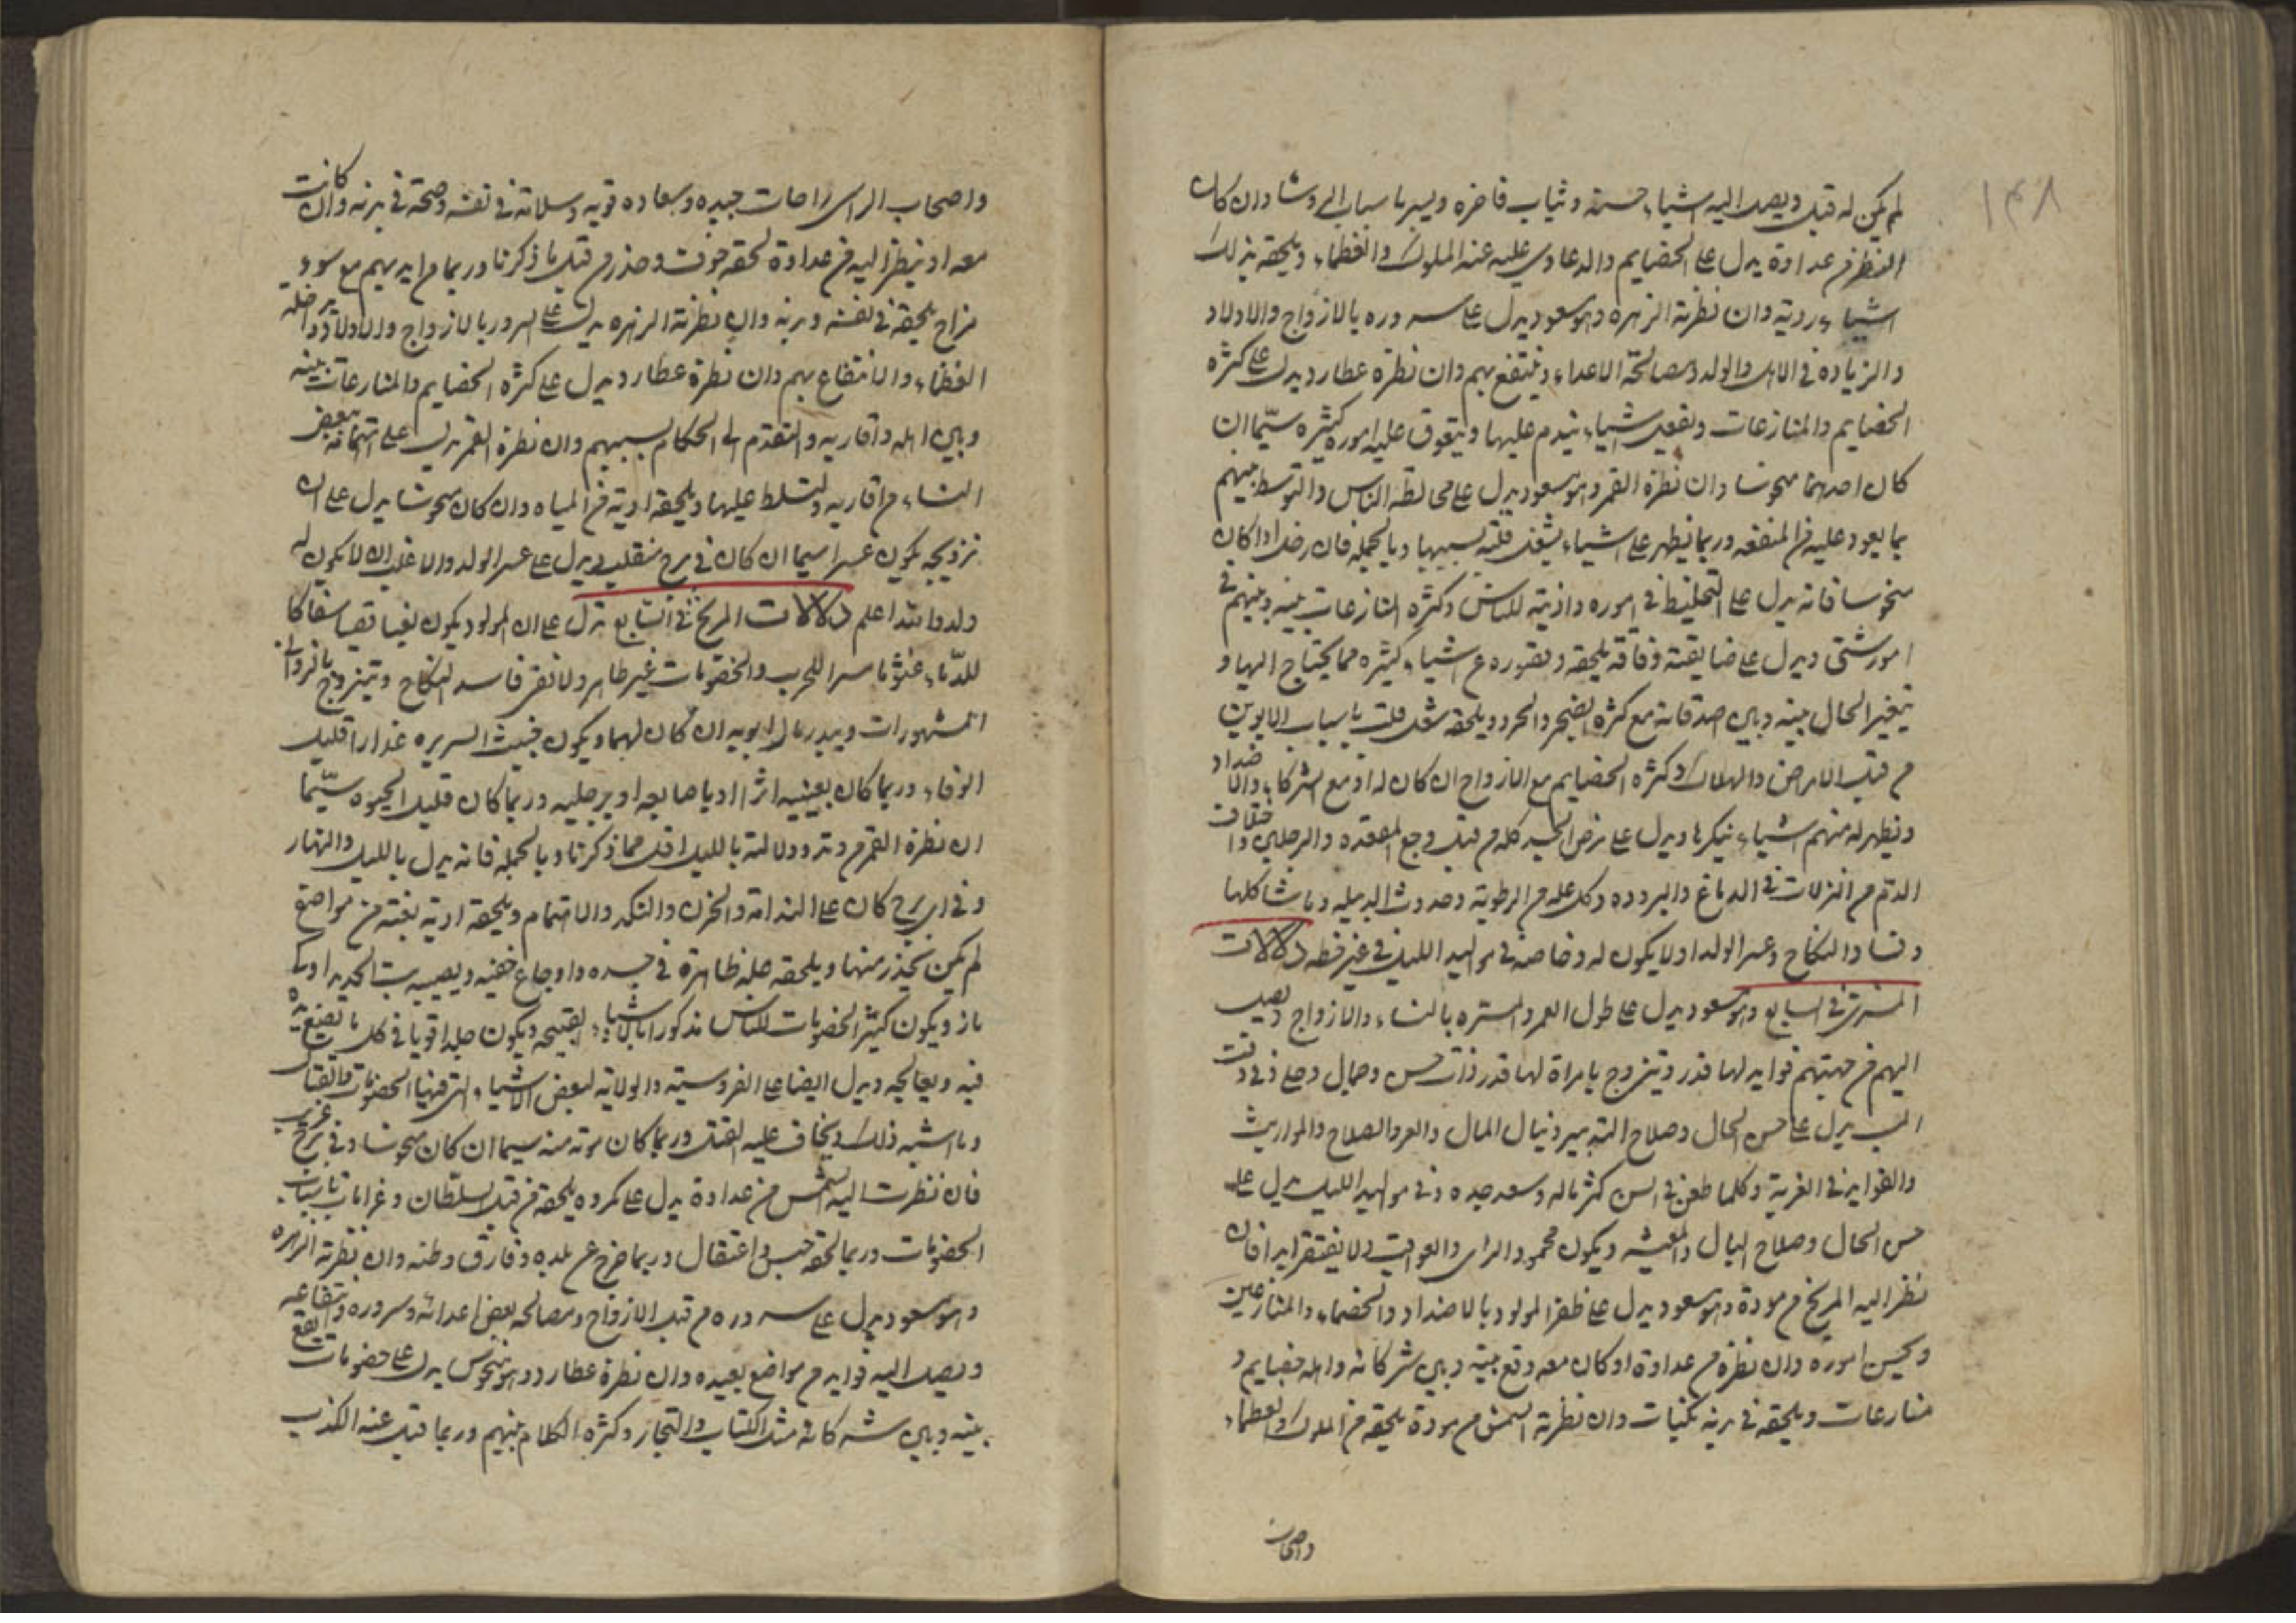 ١٤٨
لم يكن له قبل ويصل اليه اشياء حسنة وثياب فاخره ويسير باسباب الي وشا وان كان
النظر من عداوة يدل على الخصايم والدعاوى عليه عند الملوك والعظماء ويلحقه بذلك
اشياء ردية وان نظرته الزهره وهو مسعود يدل على سروره بالازواج والاولاد
والزياده في الاهل والولد ومصالحة الاعداء وينتفع بهم وان نظره عطارد يدل على كثره
الخصايم والمنازعات ويفعل اشياء يندم عليها ويتعوق عليه اموره كثيره سيّما ان
كان احدهما منحوسا وان نظره القمر وهو مسعود يدل على مخالطه الناس والتوسط بينهم
بما يعود عليه من المنفعه وربما يظهر على اشياء يشغل قلبه بسببها وبالجمله فان زحل اذا كان
منحوسا فانه يدل على التخليط في اموره واذيته للناس وكثره المنازعات بينه وبينهم في
امور شتى ويدل على ضايقته وفاقه يلحقه وقصوره عن اشياء كثيره مما يحتاج اليها و
يتغير الحال بينه وبين اصدقائه مع كثره الضجر والحرد ويلحقه شغل قلب باسباب الابوين
من قبل الامراض والهلاك وكثره الخصايم مع الازواج ان كان له او مع الشركاء والاضداد
ويظهر له منهم اشياء ينكرها ويدل على مرض الجسد كله من قبل وجع المقعده والرجلين واختلاف
الدم من النزلات في الدماغ والبروده وكل عله من الرطوبة وحدوث الدبيله وما شاكلها
وفساد النكاح وعسر الولد او لا يكون له وخاصة في مواليد الليل في غير حظه دلالات
المشترى في السابع وهو مسعود يدل على طول العمر والمسره بالنساء والازواج ويصل
اليهم من جهتهم فوايد لها قدر ويتزوج بامراة لها قدر ذات حسن وجمال وعلى في وقت
يدل على حسن الحال وصلاح التدبير وينال المال والعز والصلاح والمواريث
والفوايد في الغربة وكلما طعن في السن كثر ماله وسعد جده وفي مواليد الليل يدل على
حسن الحال وصلاح البال والمعيشه ويكون محمود الراى والعواقب ولا يفتقر ابدا فان
نظر اليه المريخ من مودة وهو مسعود يدل على ظفر المولود بالاضداد والخصماء والمنازعين
ويحسن اموره وان نظره من عداوة او كان معه وقع بينه وبين شركائه واهله خصايم و
منازعات ويلحقه في بدنه نكبات وان نظرته الشمس من مودة يلحقه من الملوك والعظماء
واصحاب
واصحاب الراى راحات جيده وسعاده قويه وسلامة في نفسه وصحة في بدنه وان كانت
معه او ينظر اليه من عداوة لحقه خوف وحذر من قبل ما ذكرنا وربما من ابدانهم مع سوء
مزاج يلحقه في نفسه وبدنه وان نظرته الزهره يدل على السرور بالازواج والاولاد ومداخله
العظماء والانتفاع بهم وان نظره عطارد يدل على كثره الخصايم والمنازعات بينه
وبين اهله واقاربه والتقدم الى الحكام بسببهم وان نظره القمر يدل على اتهامه ببعض
النساء من اقاربه وتسلط عليها ويلحقه اذية من المياه وان كان منحوسا يدل على ان
تزويجه يكون عسرا سيما ان كان في برج منقلب ويدل على عسر الولد والاغلب ان لا يكون له
ولد والله اعلم دلالات المريخ في السابع تدل على ان المولود يكون سفاكا
للدماء غشوما مسرا للحرب والخصومات غير طاهر ولا نقى فاسد النكاح ويتزوج بالزوانى
المشهورات ويبذر مال ابويه ان كان لهما ويكون خبيث السريره غدارا قليل
الوفاء وربما كان بعينيه اثرا او باصابعه او برجليه وربما كان قليل الحيوه سيّما
ان نظره القمر من وتد ودلالته بالليل اقل مما ذكرنا وبالجمله فانه يدل بالليل والنهار
وفى اى برج كان على الندامة والحزن والنكد والاهتمام ويلحقه اذية بغتة من مواضع
لم يكن يحذر منها ويلحقه عله ظاهرة في جسده واوجاع خفيه ويصيبه الحديد او
ويكون كثير الخصومات للناس مذكورا بالاشياء القبيحه ويكون جلدا قويا في كل ما يصنع
فيه ويعالجه ويدل ايضا على الفروسية والولاية لبعض الاشياء التى فيها الخصومات والقتال
وما اشبه ذلك ويخاف عليه القتل وربما كان موته منه سيما ان كان منحوسا وفى برج غريب
فان نظرت اليه الشمس من عداوة يدل على مكروه يلحقه من قبل السلطان وغرامات باسباب
الخصومات وربما لحقه حبس واعتقال وربما خرج عن بلده وفارق وطنه وان نظرته الزهره
وهو مسعود يدل على سروره من قبل الازواج ومصالحه بعض اعدائه وسروره وانتفاعه
ويصل اليه فوايد من مواضع بعيده وان نظره عطارد وهو منحوس يدل على خصومات يقع
بينه وبين شركائه مثل الكتاب والتجار وكثره الكلام بينهم وربما قبل عنه الكذب